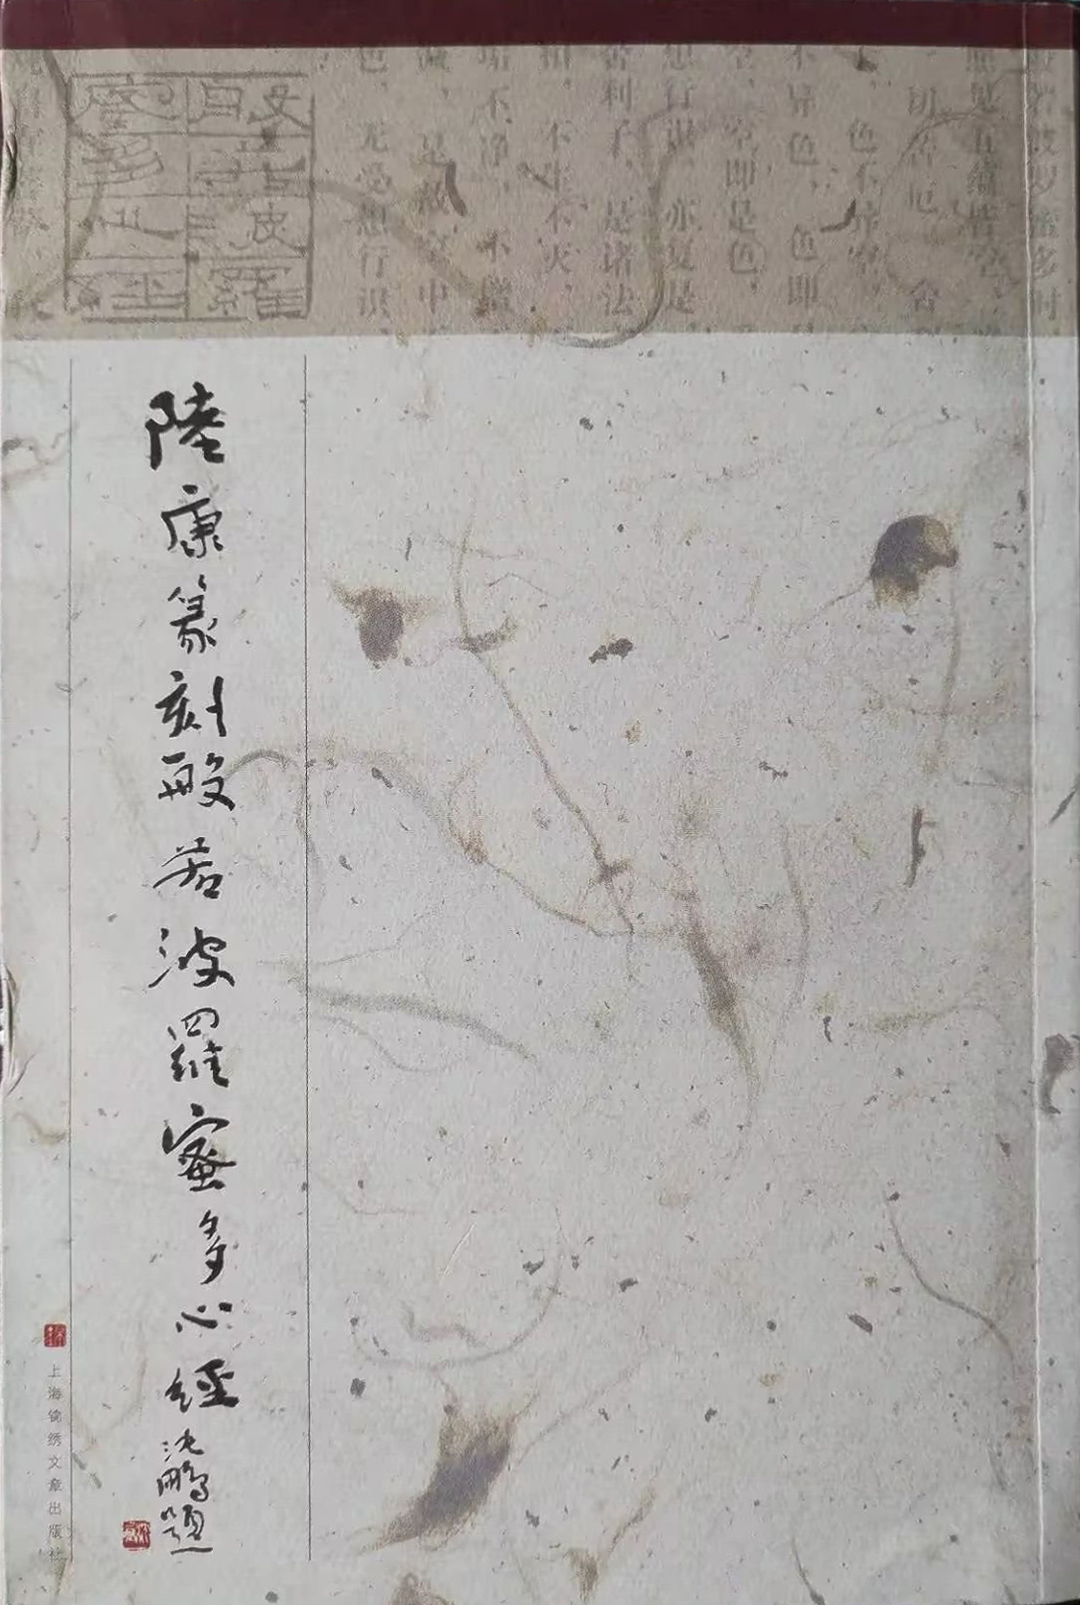 若波罗蜜多时
照见五蕴皆空，
一切苦厄。舍
色不异空，
不异色，色即
空，空即是色，
想行识，亦复是
舍利子，是诸法
相，不生不灭，
垢不净，不增
减，是故空中
色，无受想行识，
陸康篆刻般若波羅蜜多心經
沈鹏題
上海锦绣文章出版社